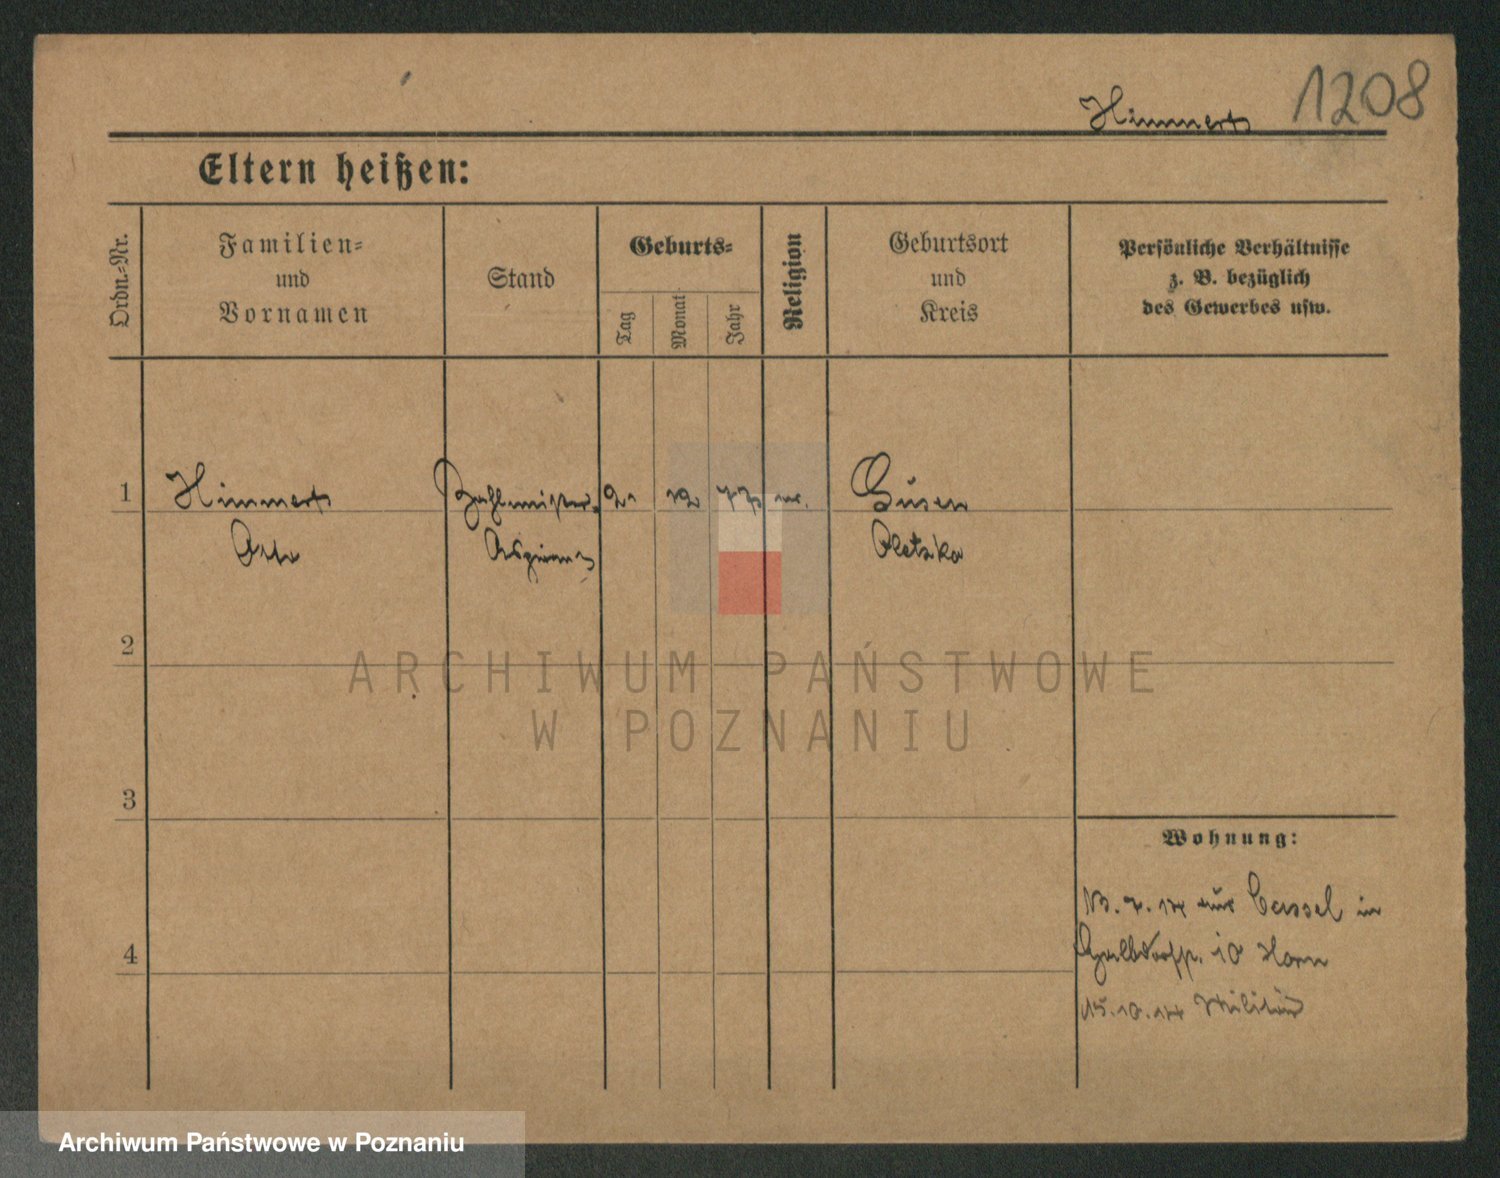 1208
Himmerts
Eltern heißen:
Ordn.-Nr.
Familien-
und
Vornamen
Stand
Geburts-
Tag
Monat
Jahr
Religion
Geburtsort
und
Kreis
Persönliche Verhältnisse
z. B. bezüglich
des Gewerbes usw.
1 Himmerts Zahlmeister- 2. 12 Gusen
Otto Aspirant Oletzko
2
3
4
ARCHIWUM PAŃSTWOWE
W POZNANIU
Wohnung:
13. 7. 14 aus Cassel in
10 Horn
15.10.14 Militär
Archiwum Państwowe w Poznaniu